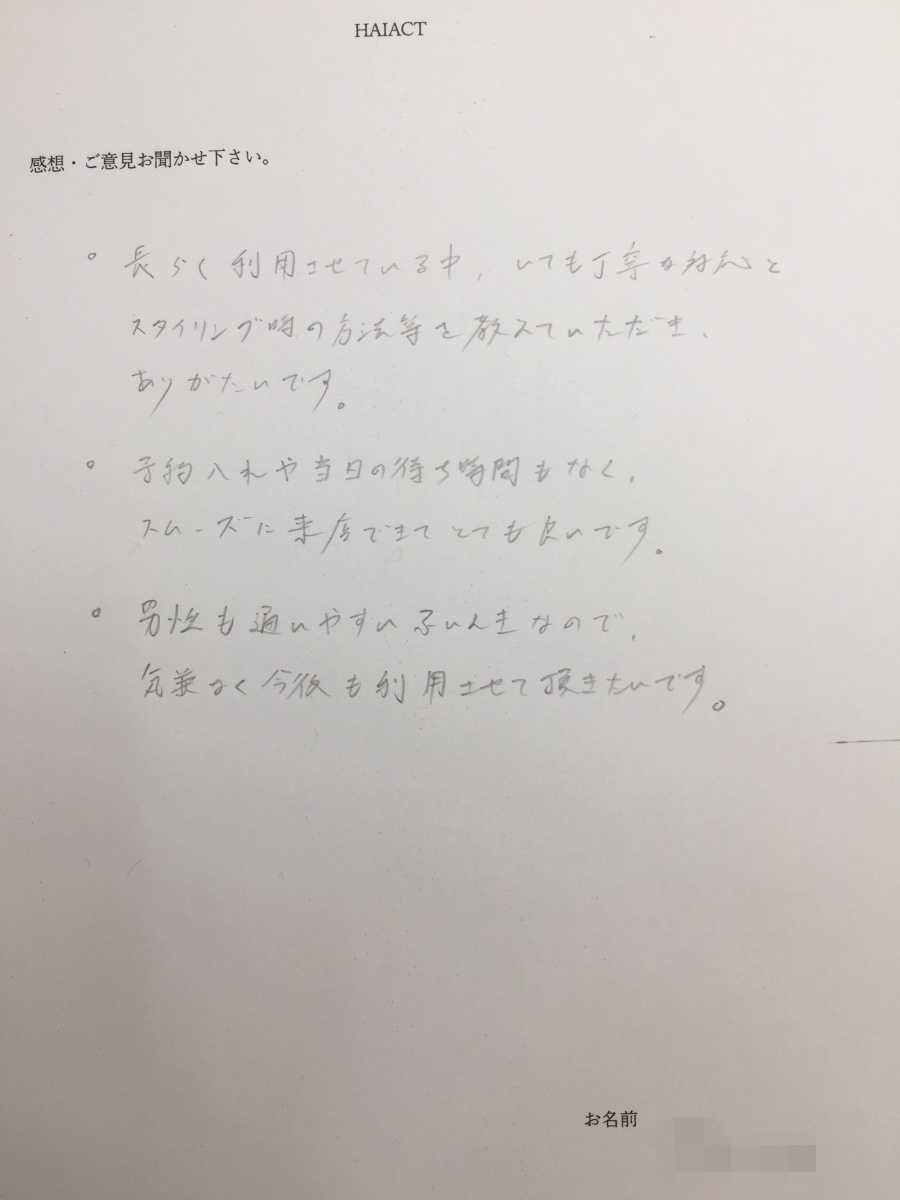 HAIACT
感想・ご意見お聞かせ下さい。
。長らく利用させている中,いても丁寧な対応と
スタイリング時の方法等を教えていただき、
ありがたいです。
。予約入れや当日の待ち時間もなく,
スムーズに来店できてとても良いです。
。男性も通いやすいふいんきなので,
気兼なく今後も利用させて頂きたいです。
お名前